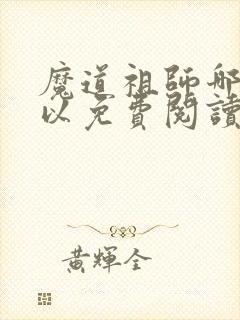 魔道祖師哪
以免費閱讀
黃輝全